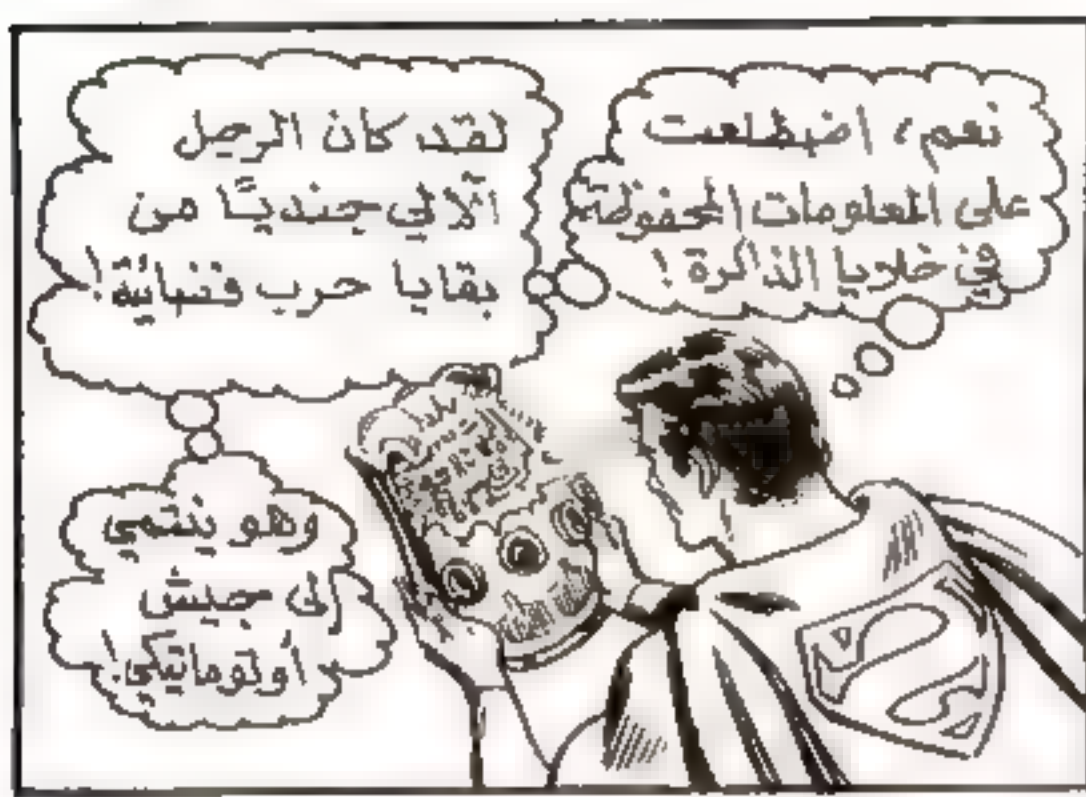 نعم، اضطلعت
على المعلومات المحفوظة
في خلايا الذاكرة!
لقد كان الرجل
الآلي جنديًا من
بقايا حرب فضائية!
وهو ينتمي
إلى جيش
أوتوماتيكي!
S